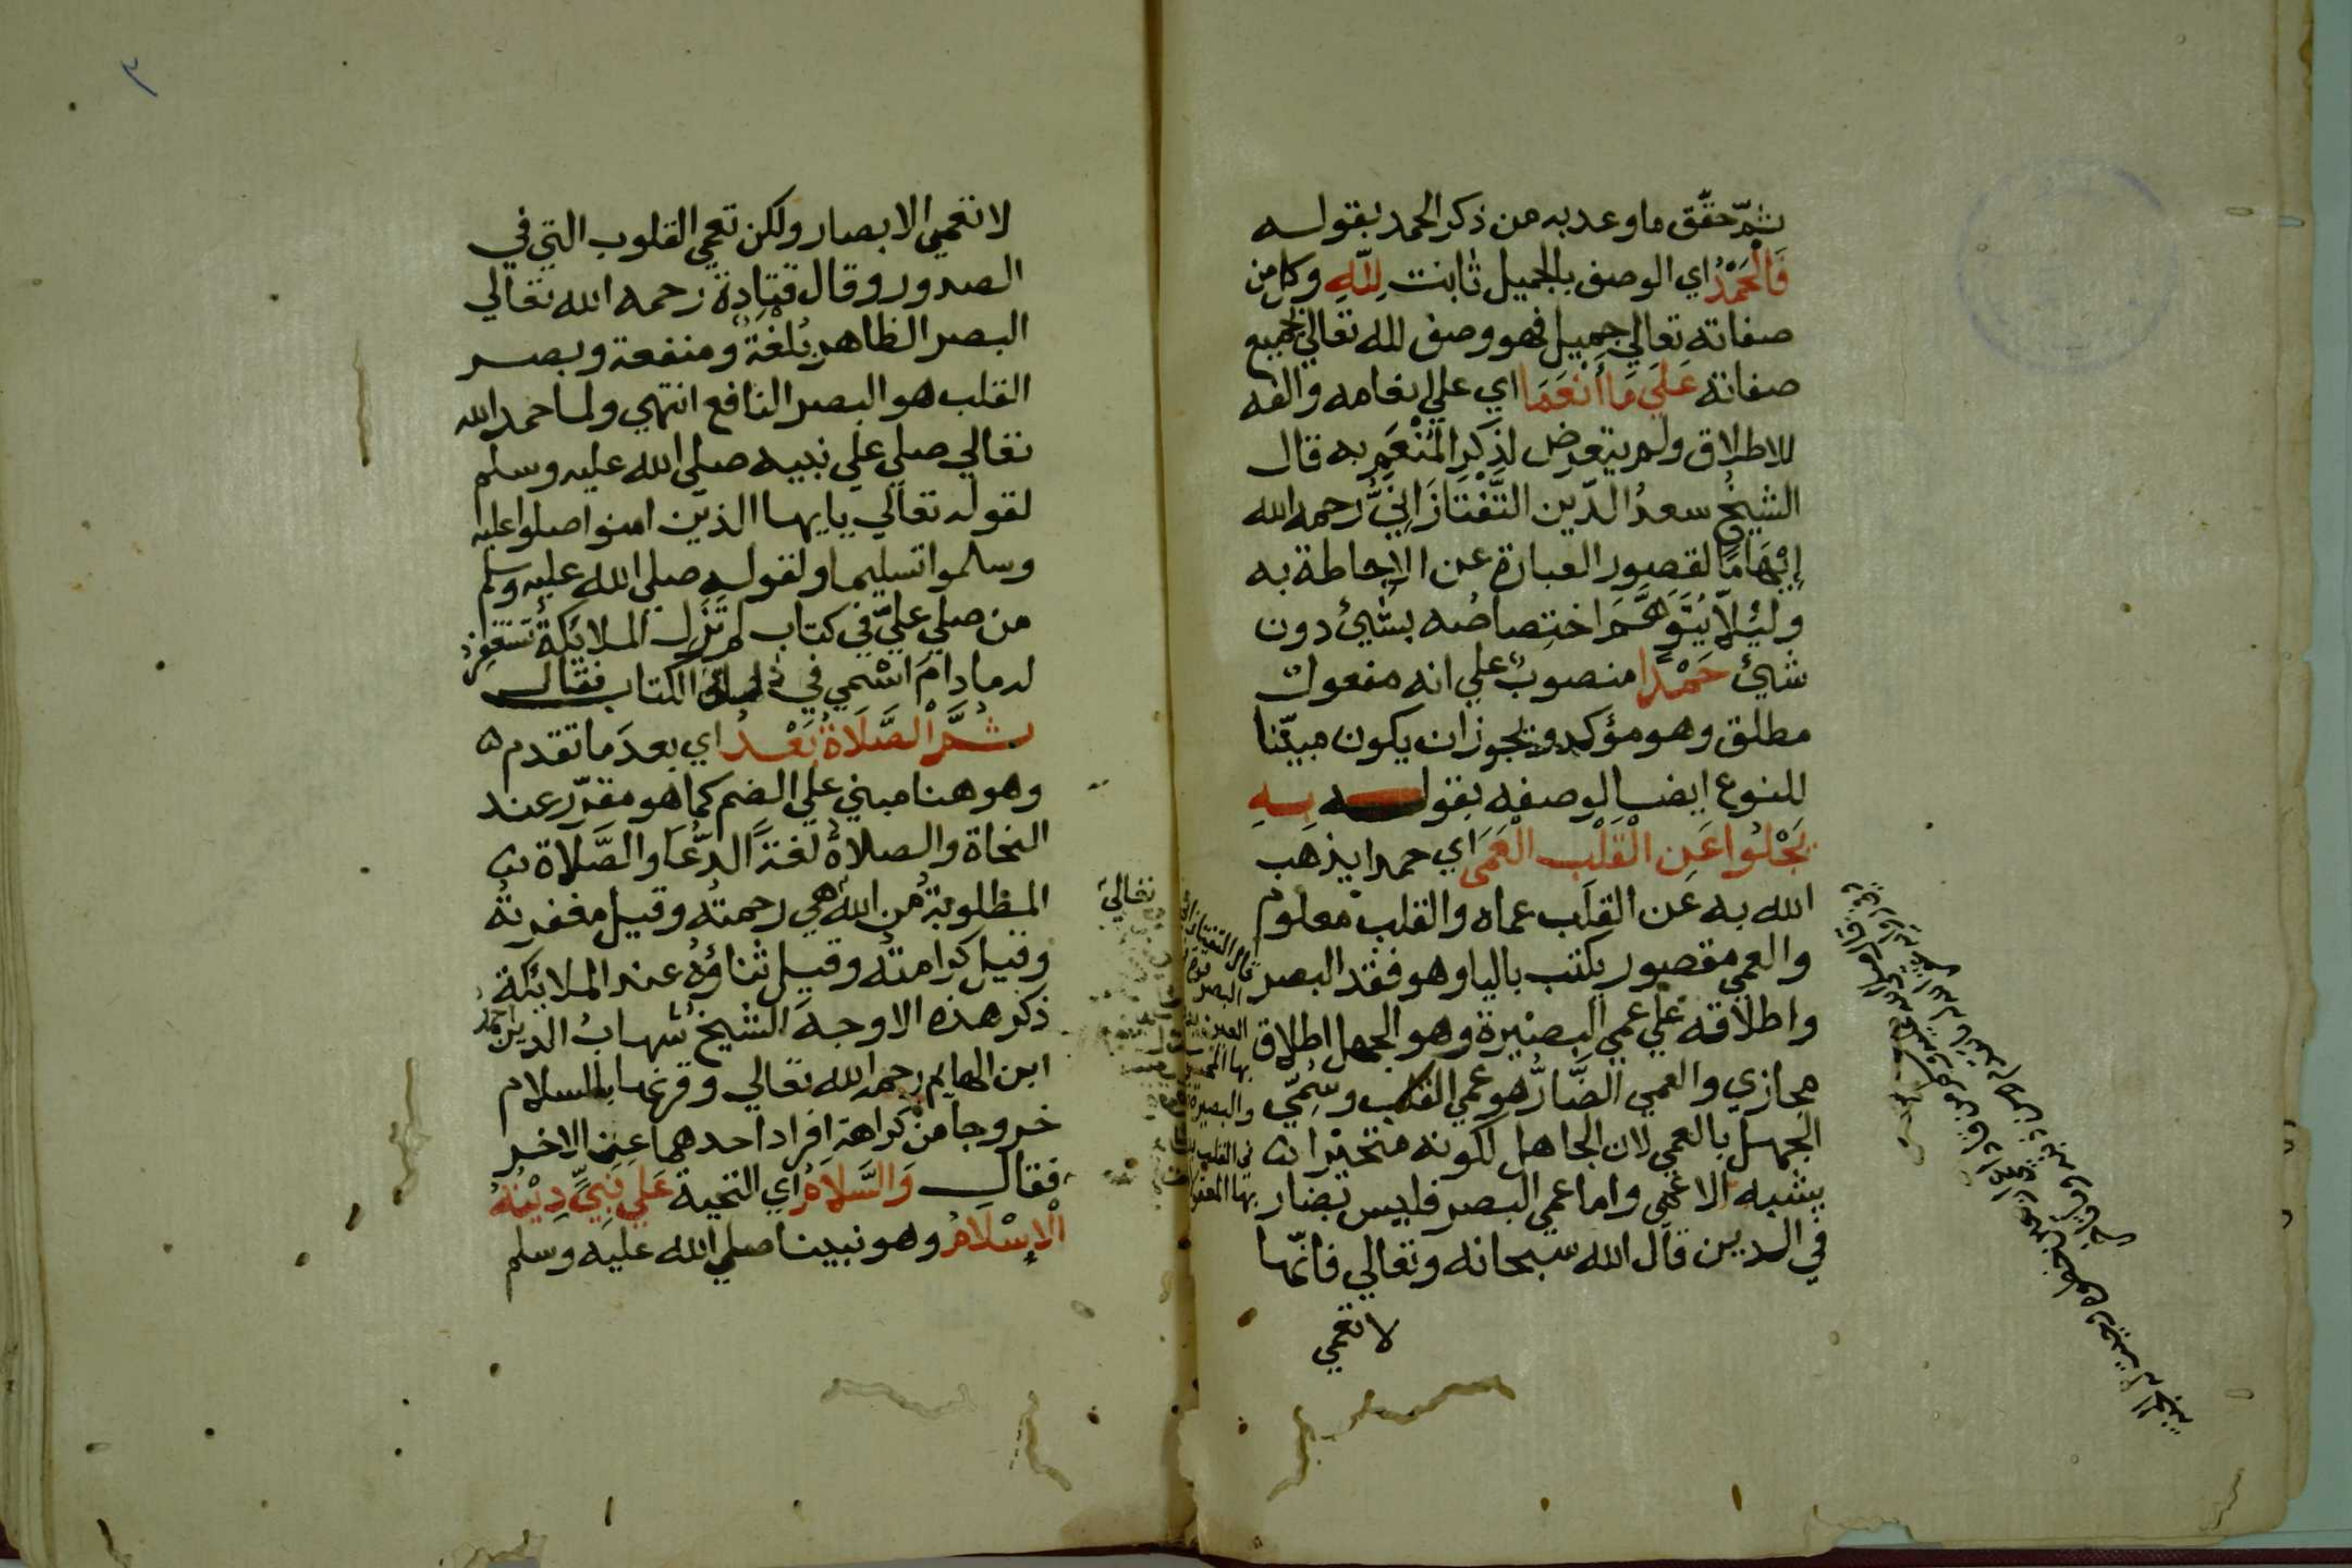 ثمّ حقّق ما وعد به من ذكر الحمد بقوله
فَالْحَمْدُ اي الوصف بالجميل ثابت لِلّهِ وكل من
صفاته تعالي جميل فهو وصف لله تعالي بجميع
صفاته عَلَي مَا أَنْعَمَا اي علي انعامه والفه
للاطلاق ولم يتعرض لذِكرِ المُنْعَمِ به قال
الشيخُ سعدُ الدّين التَّفْتَازَانِيُّ رحمه الله
إيْهَامًا لقصور العبارة عن الإحاطة به
ولِئلاّ يُتَوَهَّمَ اختصاصُه بشيئ دون
شيئ حَمْدًا منصوبٌ علي انه مفعول
مطلق وهو مؤكد ويجوز ان يكون مبيّنا
للنوع ايضا لوصفه بقوله بِهِ
يَجْلُوا عَنِ الْقَلْبِ الْعَمَى اي حمدا يذهب
الله به عن القلب عماه والقلب معلوم
والعمي مقصور يكتب باليا وهو فقد البصر
واطلاقه علي عمي البصيرة وهو الجهل اطلاق
مجازي والعمي الضَّارُّ هو عمي القلب وسُمّي
الجهل بالعمي لان الجاهل لكونه متحيرا
يشبه الاعمى واما عمي البصر فليس بضار
في الدين قال الله سبحانه وتعالي فانّها
لا تعمي
٣
لا تعمي الابصار ولكن تعمي القلوب التي في
الصدور وقال قتادة رحمه الله تعالي
البصر الظاهر بُلْغَةٌ ومنفعة وبصر
القلب هو البصر النافع انتهي ولما حمد الله
تعالي صلي علي نبيه صلي الله عليه وسلم
لقوله تعالي يايها الذين امنوا صلوا عليه
وسلموا تسليما ولقوله صلي الله عليه وسلم
من صلي عليّ في كتاب لم تزل الملائكةُ تستغفر
له ما دام اسْمي في ذلك الكتاب فقال
ثُمَّ الصَّلَاةُ بَعْدُ اي بعدَ ما تقدم
وهو هنا مبني علي الضم كما هو مقرّر عند
النحاة والصلاةُ لغةً الدُّعَا والصَّلاة
المطلوبةُ من الله هي رحمتُه وقيل مغفرتهُ
وقيل كرامتُه وقيل ثناؤهُ عند الملائكة
ذكر هذه الاوجهَ الشيخُ شهابُ الدين احمد
ابن الهايم رحمه الله تعالي وقرنها بالسلام
خروجا من كراهة افراد احدهما عن الاخر
فقال وَالسَّلاَمُ اي التحية عَلَي نَبِيٍّ دِيْنُهُ
الْإِسْلَامُ وهو نبينا صلي الله عليه وسلم
تعالي